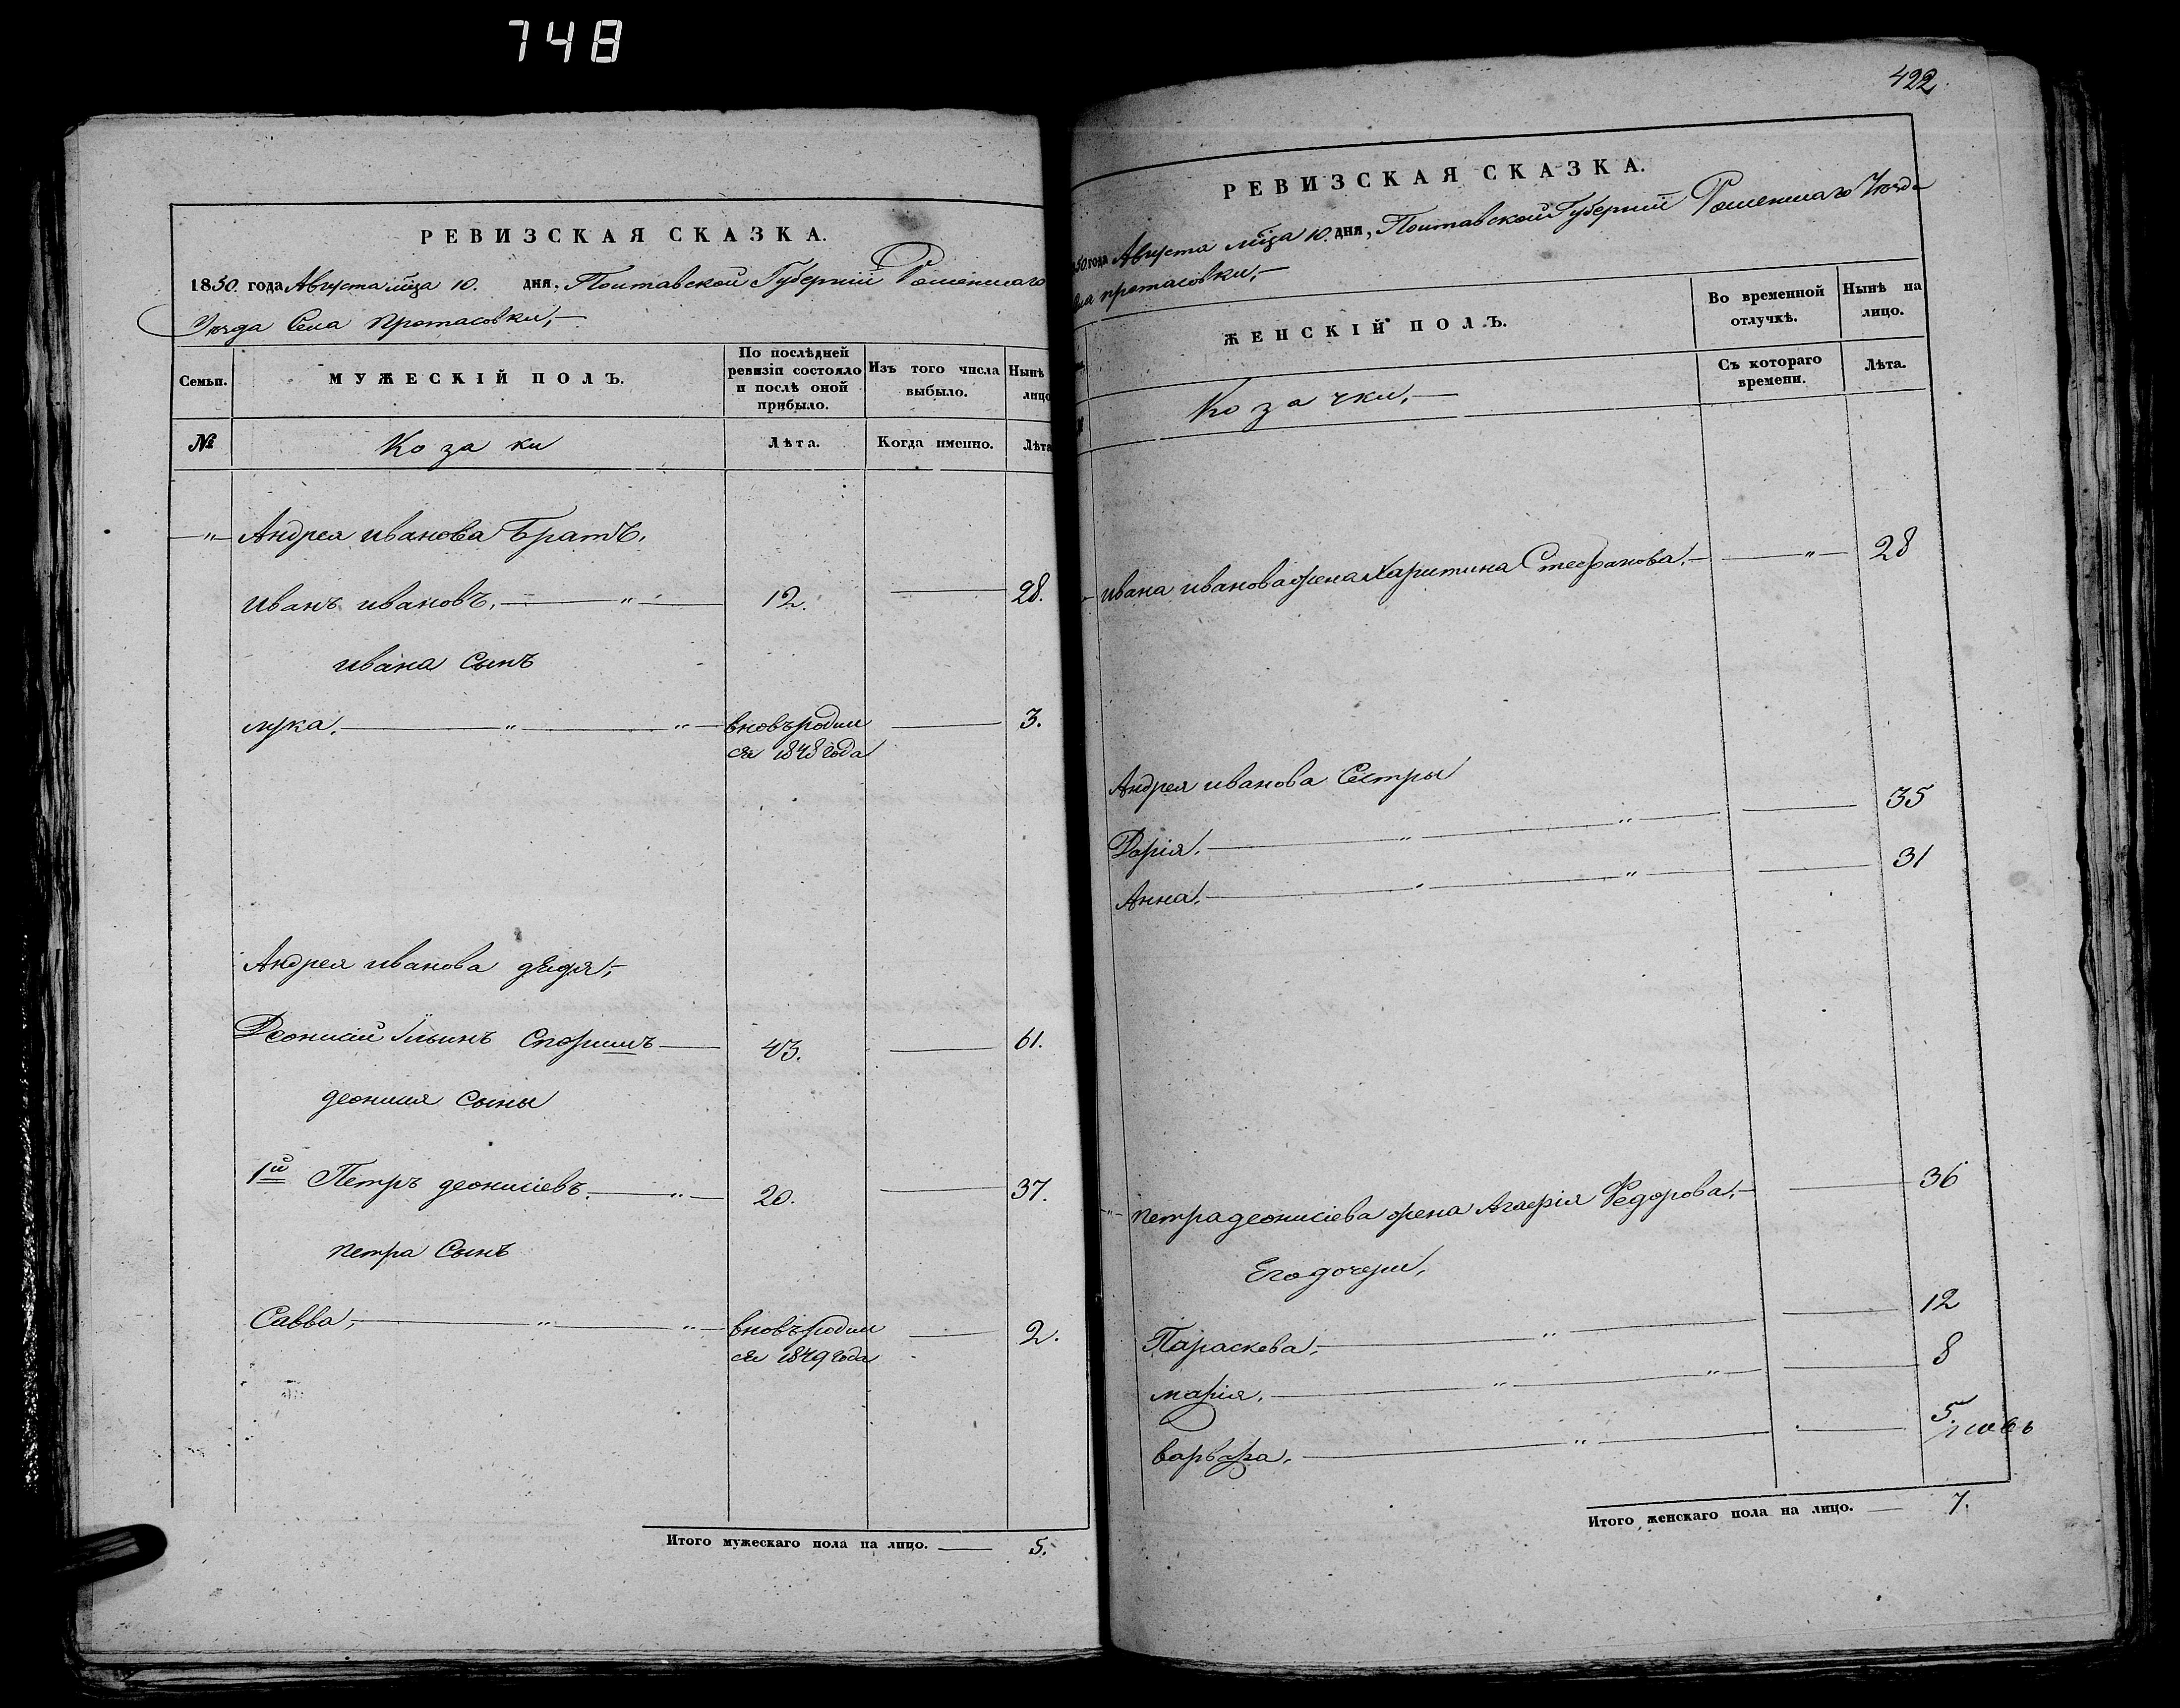 748
РЕВИЗСКАЯ СКАЗКА.
1850 года Августа мца 10. дня, Полтавской Губерніи Роменскаго
Уезда Села Протасовки,
Семьи.
МУЖЕСКІЙ ПОЛЪ.
По послѣдней ревизіи состояло и послѣ оной прибыло.
Изъ того числа выбыло.
Нынѣ
лицо
№
Козаки
Лѣта.
Когда именно.
Лѣта
Андрея иванова Братъ,
Иванъ ивановъ, 12. 28.
ивана Сынъ
лука, вновьродил 3.
ся 1848 года
Андрея иванова дядя,
Деонисій Ільинъ Споришъ 43. 61.
деонисія Сыны
1й Петръ деонисіевъ 20. 37.
петра Сынъ
Савва, вновьродил 2.
ся 1849 года
Итого мужескаго пола на лицо. 5.
422
РЕВИЗСКАЯ СКАЗКА.
50 года Августа мца 10. дня, Полтавской Губерніи Роменскаго Уезда
ела протасовки,
ЖЕНСКІЙ ПОЛЪ.
Во временной отлучкѣ.
Нынѣ на лицо.
Козачки,
Съ котораго времени.
Лѣта.
ивана иванова жена Харитина Стефанова, 28
Андрея иванова Сестры
Дарія, 35
Анна, 31
петра деонисіева жена Агафія Федорова, 36
Его дочери,
Параскева, 12
марія, 8
варвара, 5
Итого женскаго пола на лицо. 7.